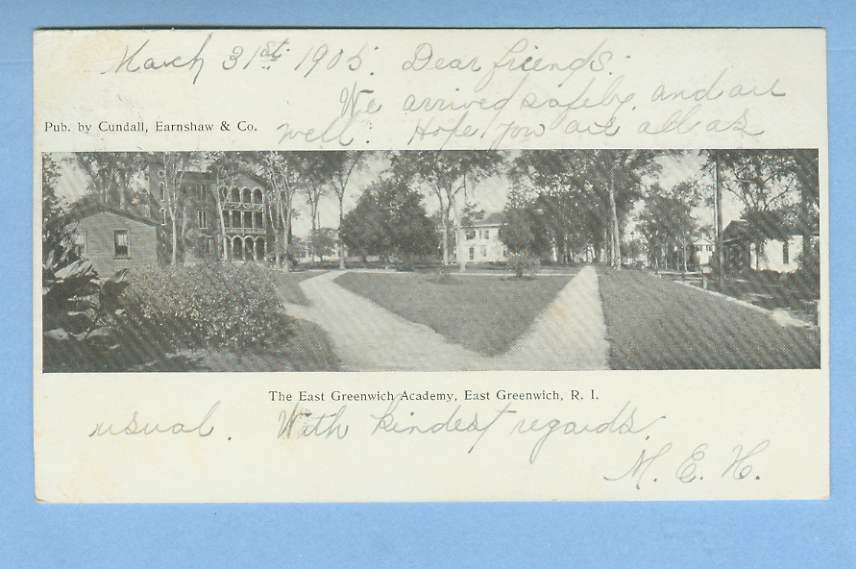 March 31st 1905. Dear friends.
We arrived safely, and all
Pub. by Cundall, Earnshaw & Co.
well. Hope you are all as
The East Greenwich Academy, East Greenwich, R. I.
usual. With kindest regards.
M. E. H.